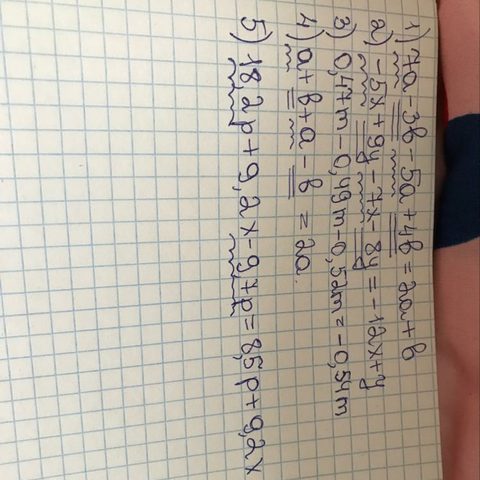 1) 7a - 3b - 5a + 4b = 2a + b
2) -5x + 9y - 7x - 8y = -12x + y
3) 0,47m - 0,49m - 0,52m = -0,54m
4) a + b + a - b = 2a.
5) 18,2p + 9,2x - 9,7p = 8,5p + 9,2x